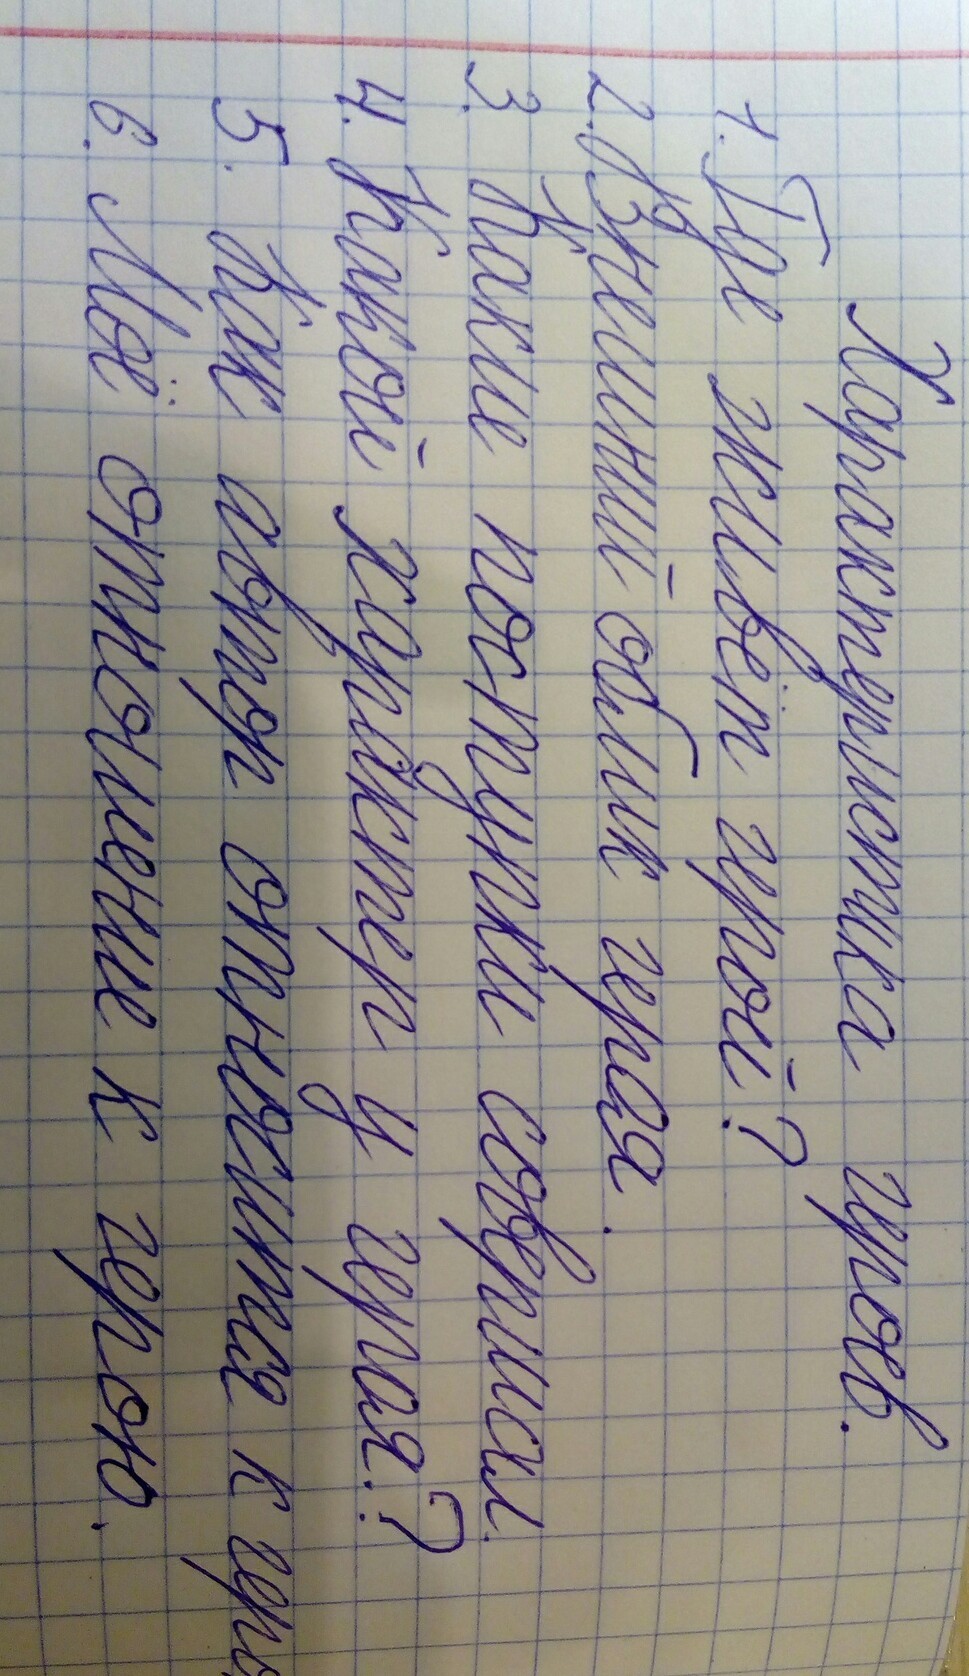 Характеристика героев.
1. Где живёт герой?
2. Внешний облик героя.
3. Какие поступки совершил.
4. Какой характер у героя.?
5. Как автор относится к геро
6. Моё отношение к герою.